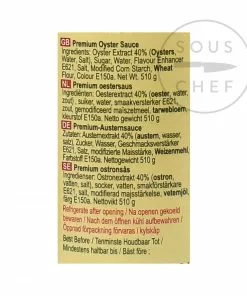 SOUS
CHEF
GB Premium Oyster Sauce
Ingredients: Oyster Extract 40% (Oysters,
Water, Salt), Sugar, Water, Flavour Enhancer
E621, Salt, Modified Corn Starch, Wheat
Flour, Colour E150a. Net Weight: 510 g
NL Premium oestersaus
Ingredienten: Oesterextract 40% (oester, water,
zout), suiker, water, smaakversterker E621,
zout, gemodificeerd maïszetmeel, tarwebloem,
kleurstof E150a. Netto gewicht: 510 g
DE Premium-Austernsauce
Zutaten: Austernextrakt 40% (austern, wasser,
salz), Zucker, Wasser, Geschmacksverstärker
E621, Salz, modifizierte Maisstärke, Weizenmehl,
Farbstoff E150a. Nettogewicht: 510 g
SE Premium ostronsås
Ingredienser: Ostronextrakt 40% (ostron,
vatten, salt), socker, vatten, smakförstärkare
E621, salt, modifierad majsstärkelse, vetemjöl,
färg E150a. Netovikt 510 g
Refrigerate after opening / Na openen gekoeld
bewaren / Nach dem öffnen kühl aufbewahren /
Öppnad förpackning förvaras i kylskåp
Best Before / Tenminste Houdbaar Tot /
Mindestens haltbar bis / Bäst före :